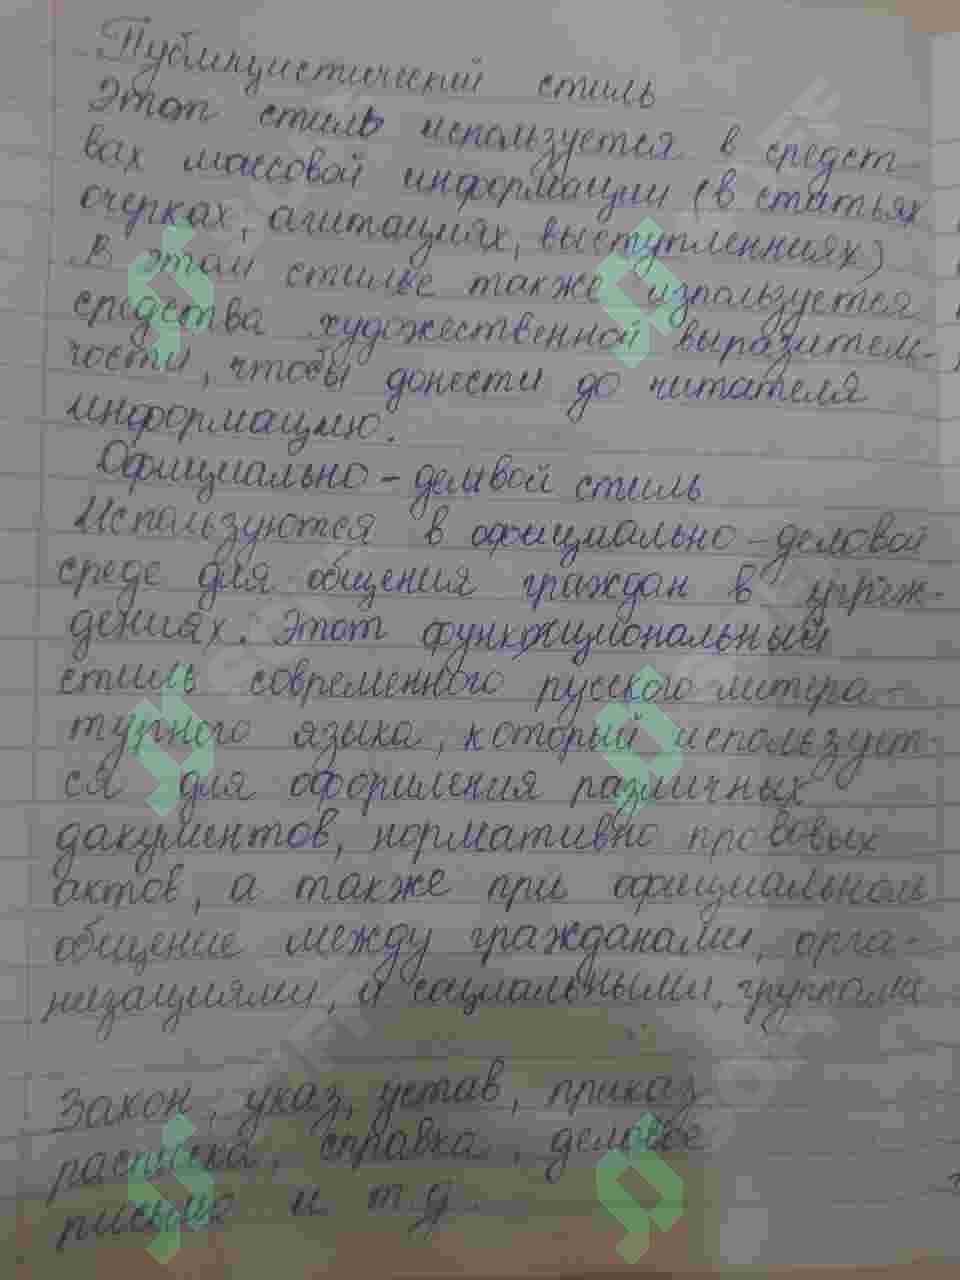 Публицистический стиль
Этот стиль используется в средст
вах массовой информации (в статьях
очерках, агитациях, выступленниях)
В этом стилье также изпользуется
средства художественной выразитель-
ности, чтобы донести до читателя
информацию.
Официально-делвой стиль
Используются в официально-деловой
среде для общения граждан в учреж-
дениях. Этот функциональный
стиль современного русского литера-
турного языка, который использует-
ся для оформления различных
дакументов, нормативно прововых
актов, а также при официальном
общение между гражданами, орга-
низациями, и социальными, группами
Закон, указ, устав, приказ
расписка, справка, деловое
письмо и т.д.